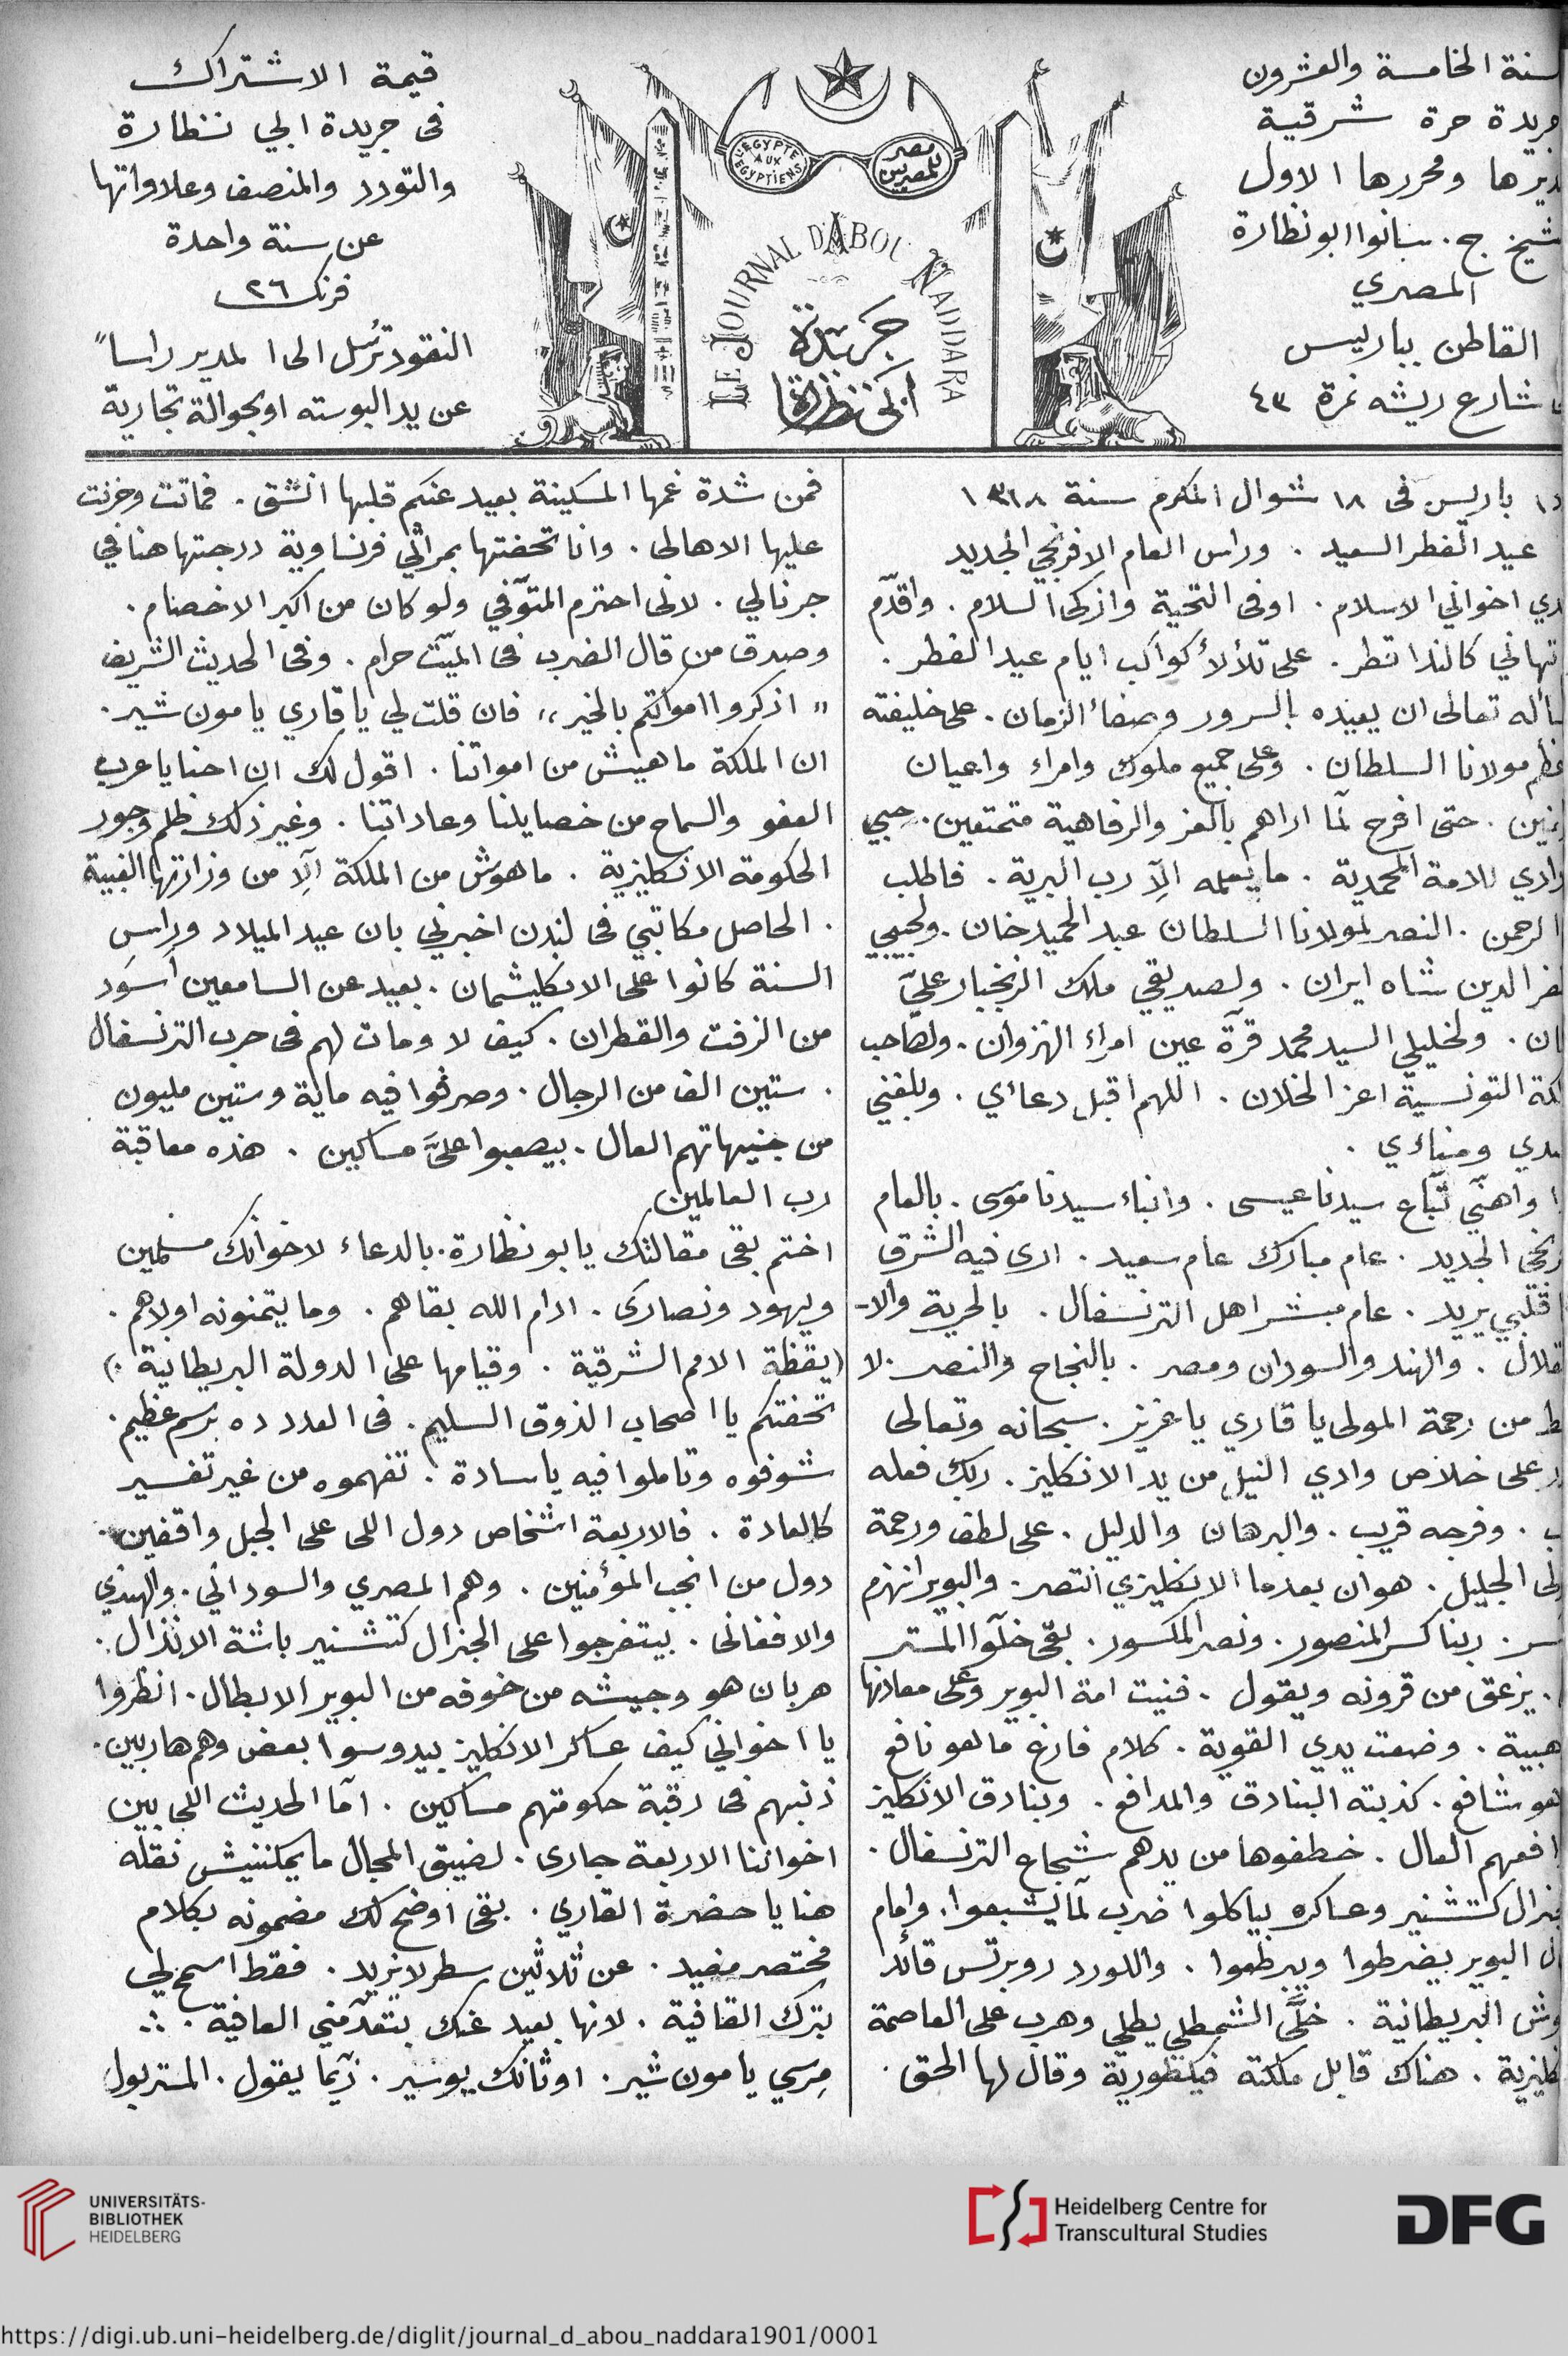 سنة الخامسة والعشرون
جريدة حرة شرقية
مديرها ومحررها الاول
شيخ ج. سانوا ابو نظارة
المصري
القاطن بباريس
شارع ريشه نمرة ٤٣
مصر للمصريين
L'EGYPTE AUX EGYPTIENS
LE JOURNAL D'ABOU NADDARA
جريدة
ابي نظارة
قيمة الاشتراك
فى جريدة ابي نظارة
والتودد والمنصف وعلاواتها
عن سنة واحدة
فرنك ٢٦
النقود ترسل الى المدير راسا
عن يد البوسته او بحوالة تجارية
باريس فى ١٨ شوال المكرم سنة ١٣١٨
عيد الفطر السعيد . وراس العام الافرنجي الجديد
اخواني الاسلام . اوفى التحية وازكى السلام . واقدّم
تهاني كالندا تطر . على تلألأ كواكب ايام عيد الفطر .
تعالى ان يعيده بالسرور وصفاء الزمان . على خليفته
مولانا السلطان . وعلى جميع ملوك وامراء واعيان
حتى افرح لمّا اراهم بالعز والرفاهية متمتعين . حبي
للامة المحمدية . ما يعلمه الّا رب البرية . فاطلب
الرحمن . النصر لمولانا السلطان عبد الحميد خان . ولحبيبي
الدين شاه ايران . ولصديقي ملك الزنجبار عليّ
ولخليلي السيد محمد قرّة عين امراء الهزوان . ولصاحب
التونسية اعز الخلان . اللهم اقبل دعائي . وبلغني
ومنائي .
واهنّي تبّاع سيدنا عيسى . وانباء سيدنا موسى . بالعام
الجديد . عام مبارك عام سعيد . ارى فيه الشرق
قلبي يريد . عام مبشر اهل الترنسفال . بالحرية والا-
والهند والسودان ومصر . بالنجاح والنصر . لا
من رحمة المولى يا قاري يا عزيز . سبحانه وتعالى
على خلاص وادي النيل من يد الانكليز . ربك فعله
وفرجه قريب . والبرهان والدليل . على لطف ورحمة
الجليل . هو ان بعدما الانكليزي انتصر . والبوير انهزم
ربنا كسر المنصور . ونصر المكسور . بقى خلّوا المستر
يزعق من قرونه ويقول . فنيت امة البوير وعلى معادنها
وضعت يدي القوية . كلام فارغ ما لهو نافع
شافع . كذبته البنادق والمدافع . وبنادق الانكليز
العال . خطفوها من يدهم شجاع الترنسفال .
كتشنير وعساكره بياكلوا ضرب لمّا يشبعوا . وامام
البوير يضرطوا ويبرطعوا . واللورد روبرتس قائد
البريطانية . خلّى الشمطلي يطلي وهرب على العاصمة
هناك قابل ملكته فيكتورية وقال لها الحق .
فمن شدة غمها المسكينة بعيد عنكم قلبها انشق . فماتت وحزنت
عليها الاهالى . وانا تحفتها بمراثي فرنساوية درجتها هنا في
جرنالي . لانى احترم المتوّفي ولو كان من اكبر الاخصام .
وصدق من قال الضرب فى الميّت حرام . وفى الحديث الشريف
„ اذكروا امواتكم بالخير „ فان قلت لي يا قاري يا مون شير .
ان الملكة ما هيش من امواتنا . اقول لك ان احنا يا عرب
العفو والسماح من خصايلنا وعاداتنا . وغير ذلك ظلم وجور
الحكومة الانكليزية . ما هوش من الملكة الّا من وزارتها الغبية
. الحاصل مكاتبي فى لندن اخبرني بان عيد الميلاد وراس
السنة كانوا على الانكليشمان . بعيد عن السامعين أسود
من الزفت والقطران . كيف لا ومات لهم فى حرب الترنسفال
. ستين الف من الرجال . وصرفوا فيه ماية وستين مليون
من جنيهاتهم العال . بيصعبوا عليَّ مساكين . هذه معاقبة
رب العالمين
اختم بقى مقالتك يابو نظارة . بالدعاء لاخوانك مسلمين
ويهود ونصارى . ادام الله بقاهم . وما يتمنونه اولاهم .
(يقظة الامم الشرقية . وقيامها على الدولة البريطانية .)
تحفتكم يا اصحاب الذوق السليم . فى العدد ده برسم عظيم .
شوفوه وتاملوا فيه يا سادة . تفهموه من غير تفسير
كالعادة . فالاربعة اشخاص دول اللى على الجبل واقفين .
دول من انجب المؤمنين . وهم المصري والسوداني . والهندي
والافغانى . بيتفرجوا على الجنرال كتشنير باشة الانذال .
هربان هو وجيشه من خوفه من البوير الابطال . انظروا
يا اخواني كيف عساكر الانكليز بيدوسوا بعض وهم هاربين .
ذنبهم فى رقبة حكومتهم مساكين . امّا الحديث اللى بين
اخواننا الاربعة جارى . لضيق المجال ما يمكننيش نقله
هنا يا حضرة القاري . بقى اوضح لك مضمونه بكلام
مختصر مفيد . عن ثلاثين سطر لا يزيد . فقط اسمح لي
بترك القافية . لانها بعيد عنك بتعدّمني العافية .
مرسي يا مون شير . اوثانك يو سير . زيّما يقول . المستر بول
UNIVERSITÄTS-
BIBLIOTHEK
HEIDELBERG
Heidelberg Centre for
Transcultural Studies
DFG
https://digi.ub.uni-heidelberg.de/diglit/journal_d_abou_naddara1901/0001